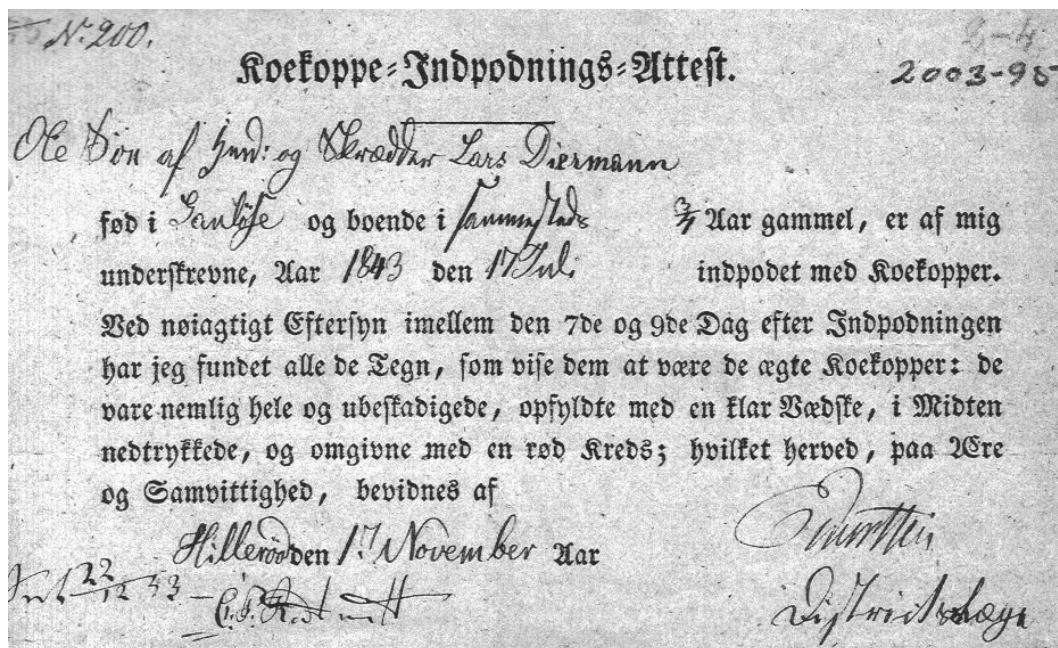 N. 200.
Koekoppe-Indpodnings-Attest.
2003-95
Ole Søn af Huusm: og Skrædder Lars Diermann
født i Ganløse og boende i sammesteds 3/4 Aar gammel, er af mig
underskrevne, Aar 1843 den 17 Juli indpodet med Koekopper.
Ved nøiagtigt Eftersyn imellem den 7de og 9de Dag efter Indpodningen
har jeg fundet alle de Tegn, som vise dem at være de ægte Koekopper: de
vare nemlig hele og ubeskadigede, opfyldte med en klar Vædske, i Midten
nedtrykkede, og omgivne med en rød Kreds; hvilket herved, paa Ære
og Samvittighed, bevidnes af
Hillerød den 17 November Aar
Districtslæge